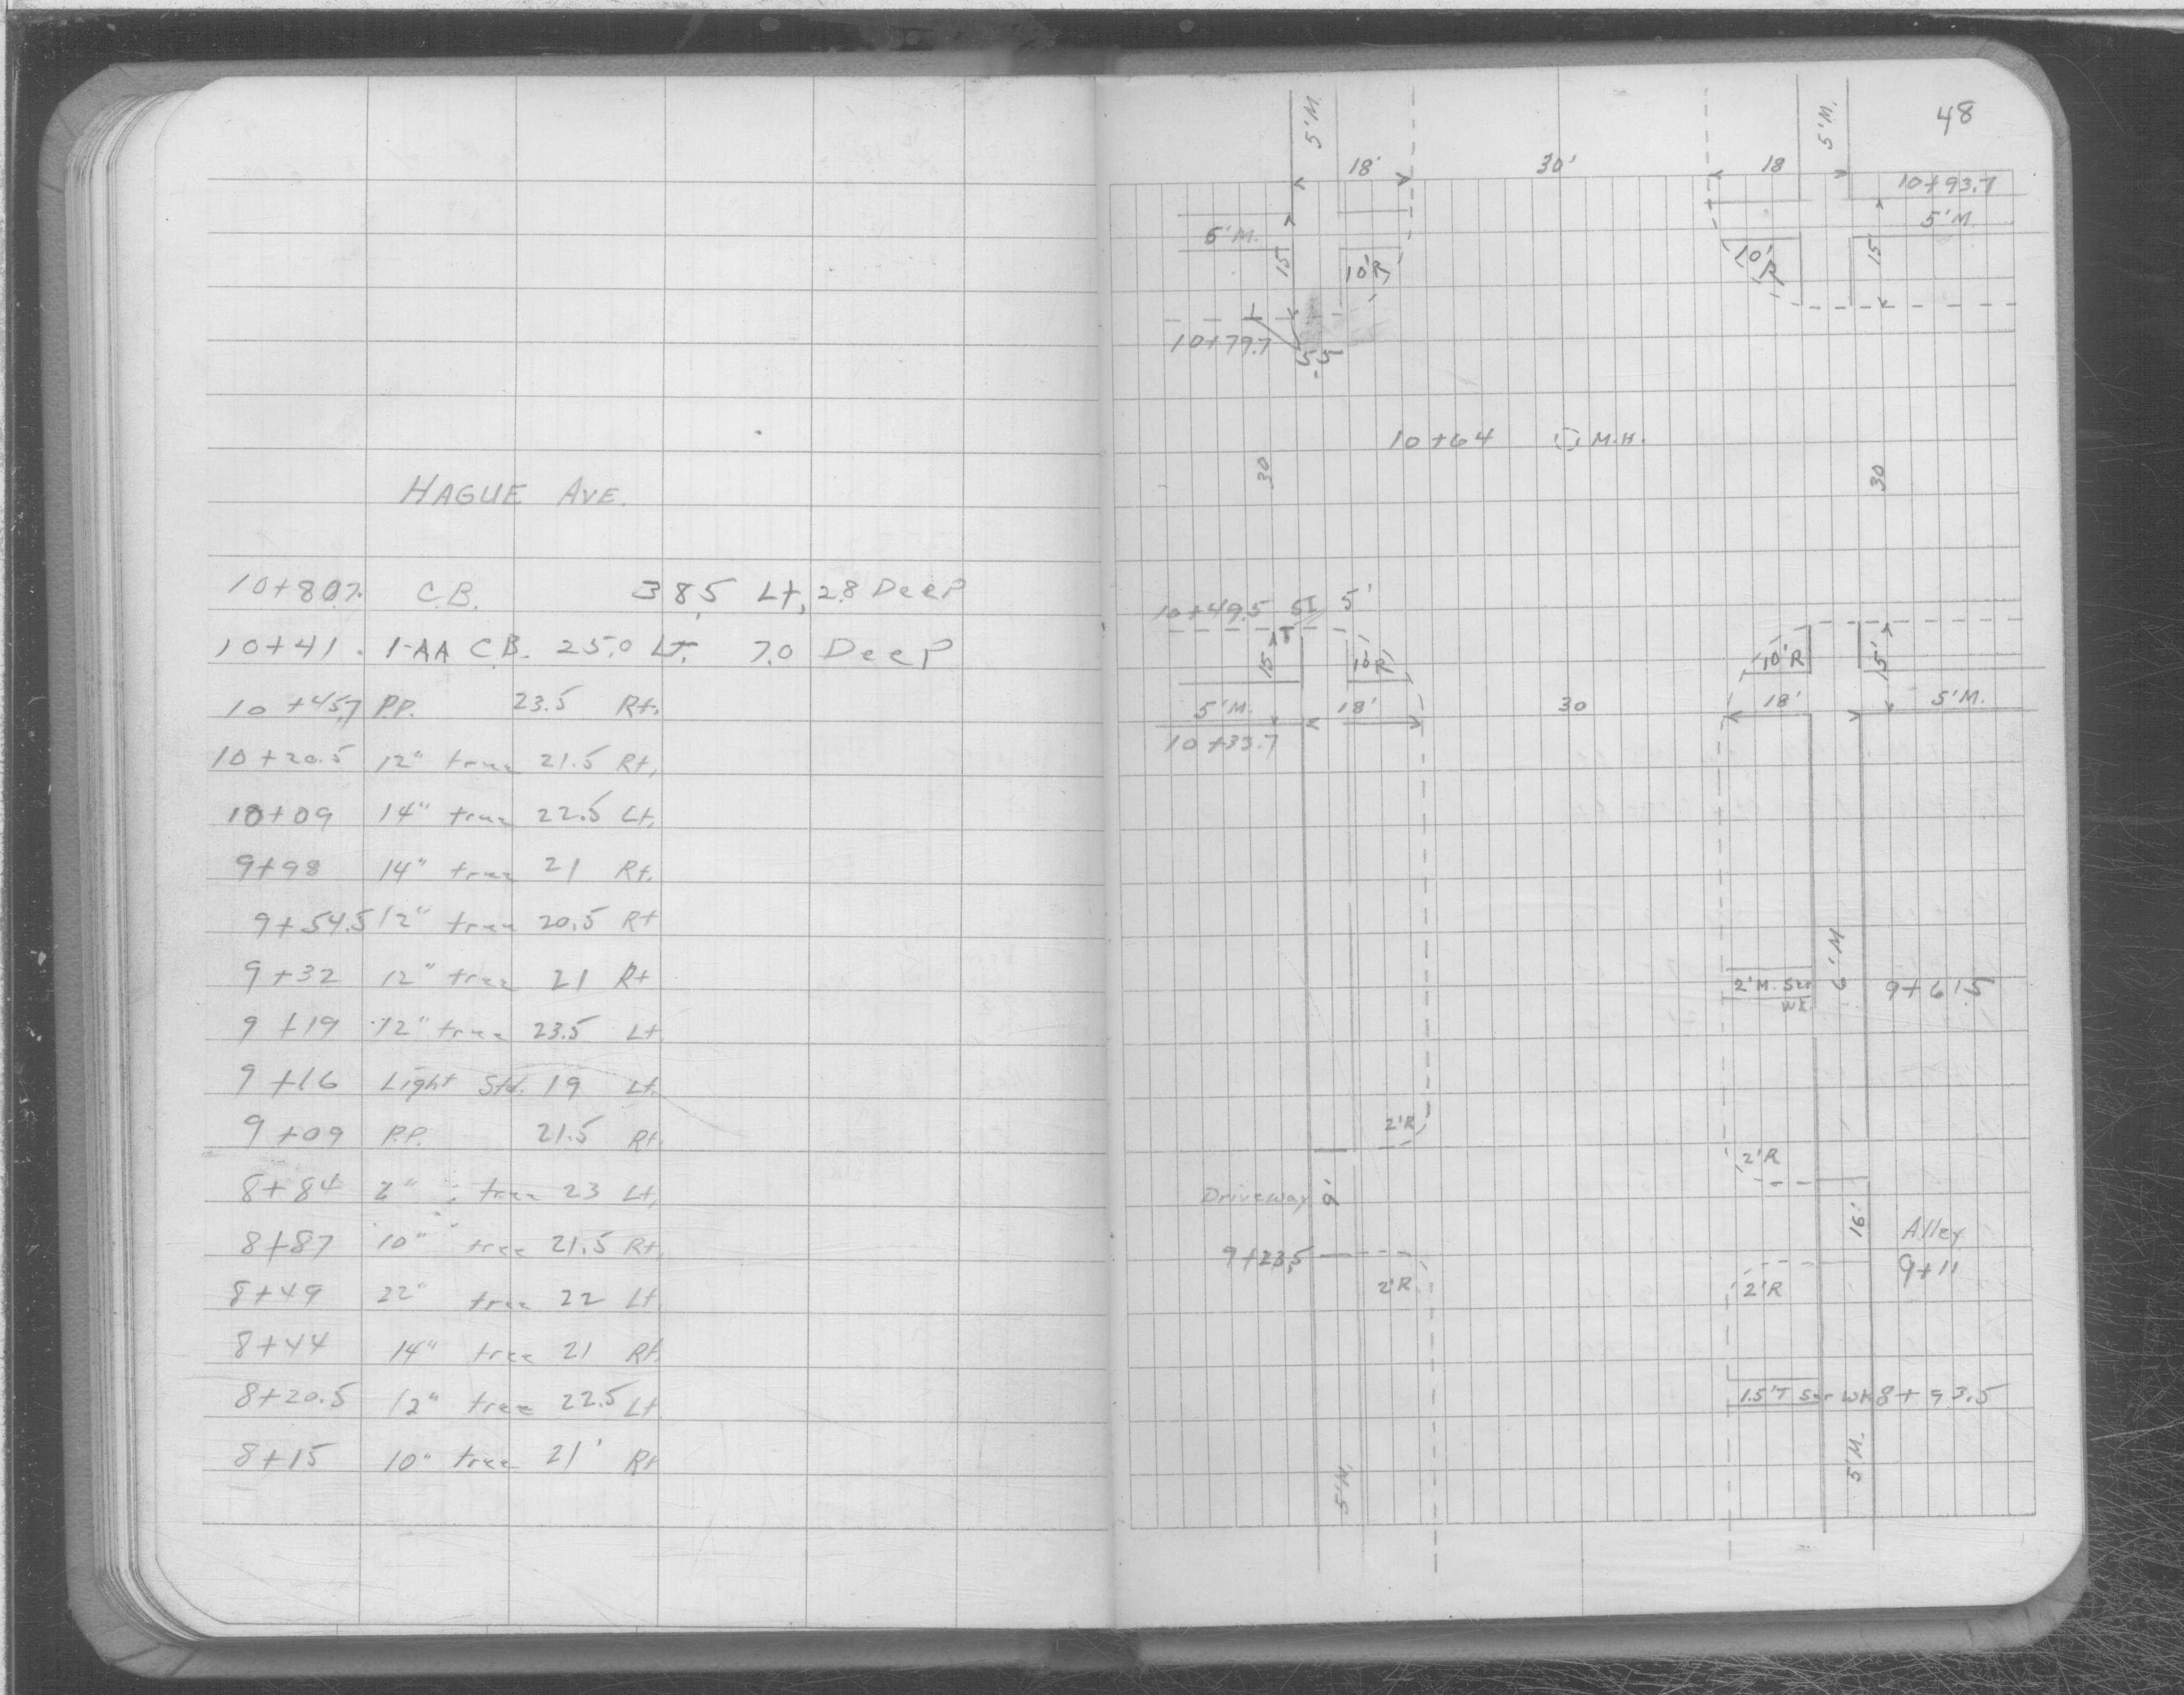 HAGUE AVE.
C.B. 38.5 Lt, 2.8 DeeP
10+41. 1-AA C.B. 25.0 Lt. 7.0 DeeP
10+45.7 P.P. 23.5 Rt.
10+20.5 12" tree 21.5 Rt.
10+09 14" tree 22.5 Lt.
9+98 14" tree 21 Rt.
9+54.5 12" tree 20.5 Rt
9+32 12" tree 21 Rt
9+19 12" tree 23.5 Lt.
9+16 Light Std. 19 Lt.
9+09 P.P. 21.5 Rt.
8+84 tree 23 Lt.
8+87 10" tree 21.5 Rt.
8+49 22" tree 22 Lt.
8+44 14" tree 21 Rt.
8+20.5 12" tree 22.5 Lt.
8+15 10" tree 21' Rt
48
5'M. 5'M.
18' 30' 18
10+93.7
5'M. 5'M.
15 10'R 10'R 15'
10+79.7
10+64 M.H.
30 30
10+49.5 5'
15 10'R 10'R 15'
5'M. 18' 30 18' 5'M.
10+33.7
6'M
2'M. Ser 9+61.5
WK.
2'R
2'R
Driveway 9' 16' Alley
9+23.5 9+11
2'R 2'R
1.5'T Ser WK 8+93.5
5'M. 5'M.